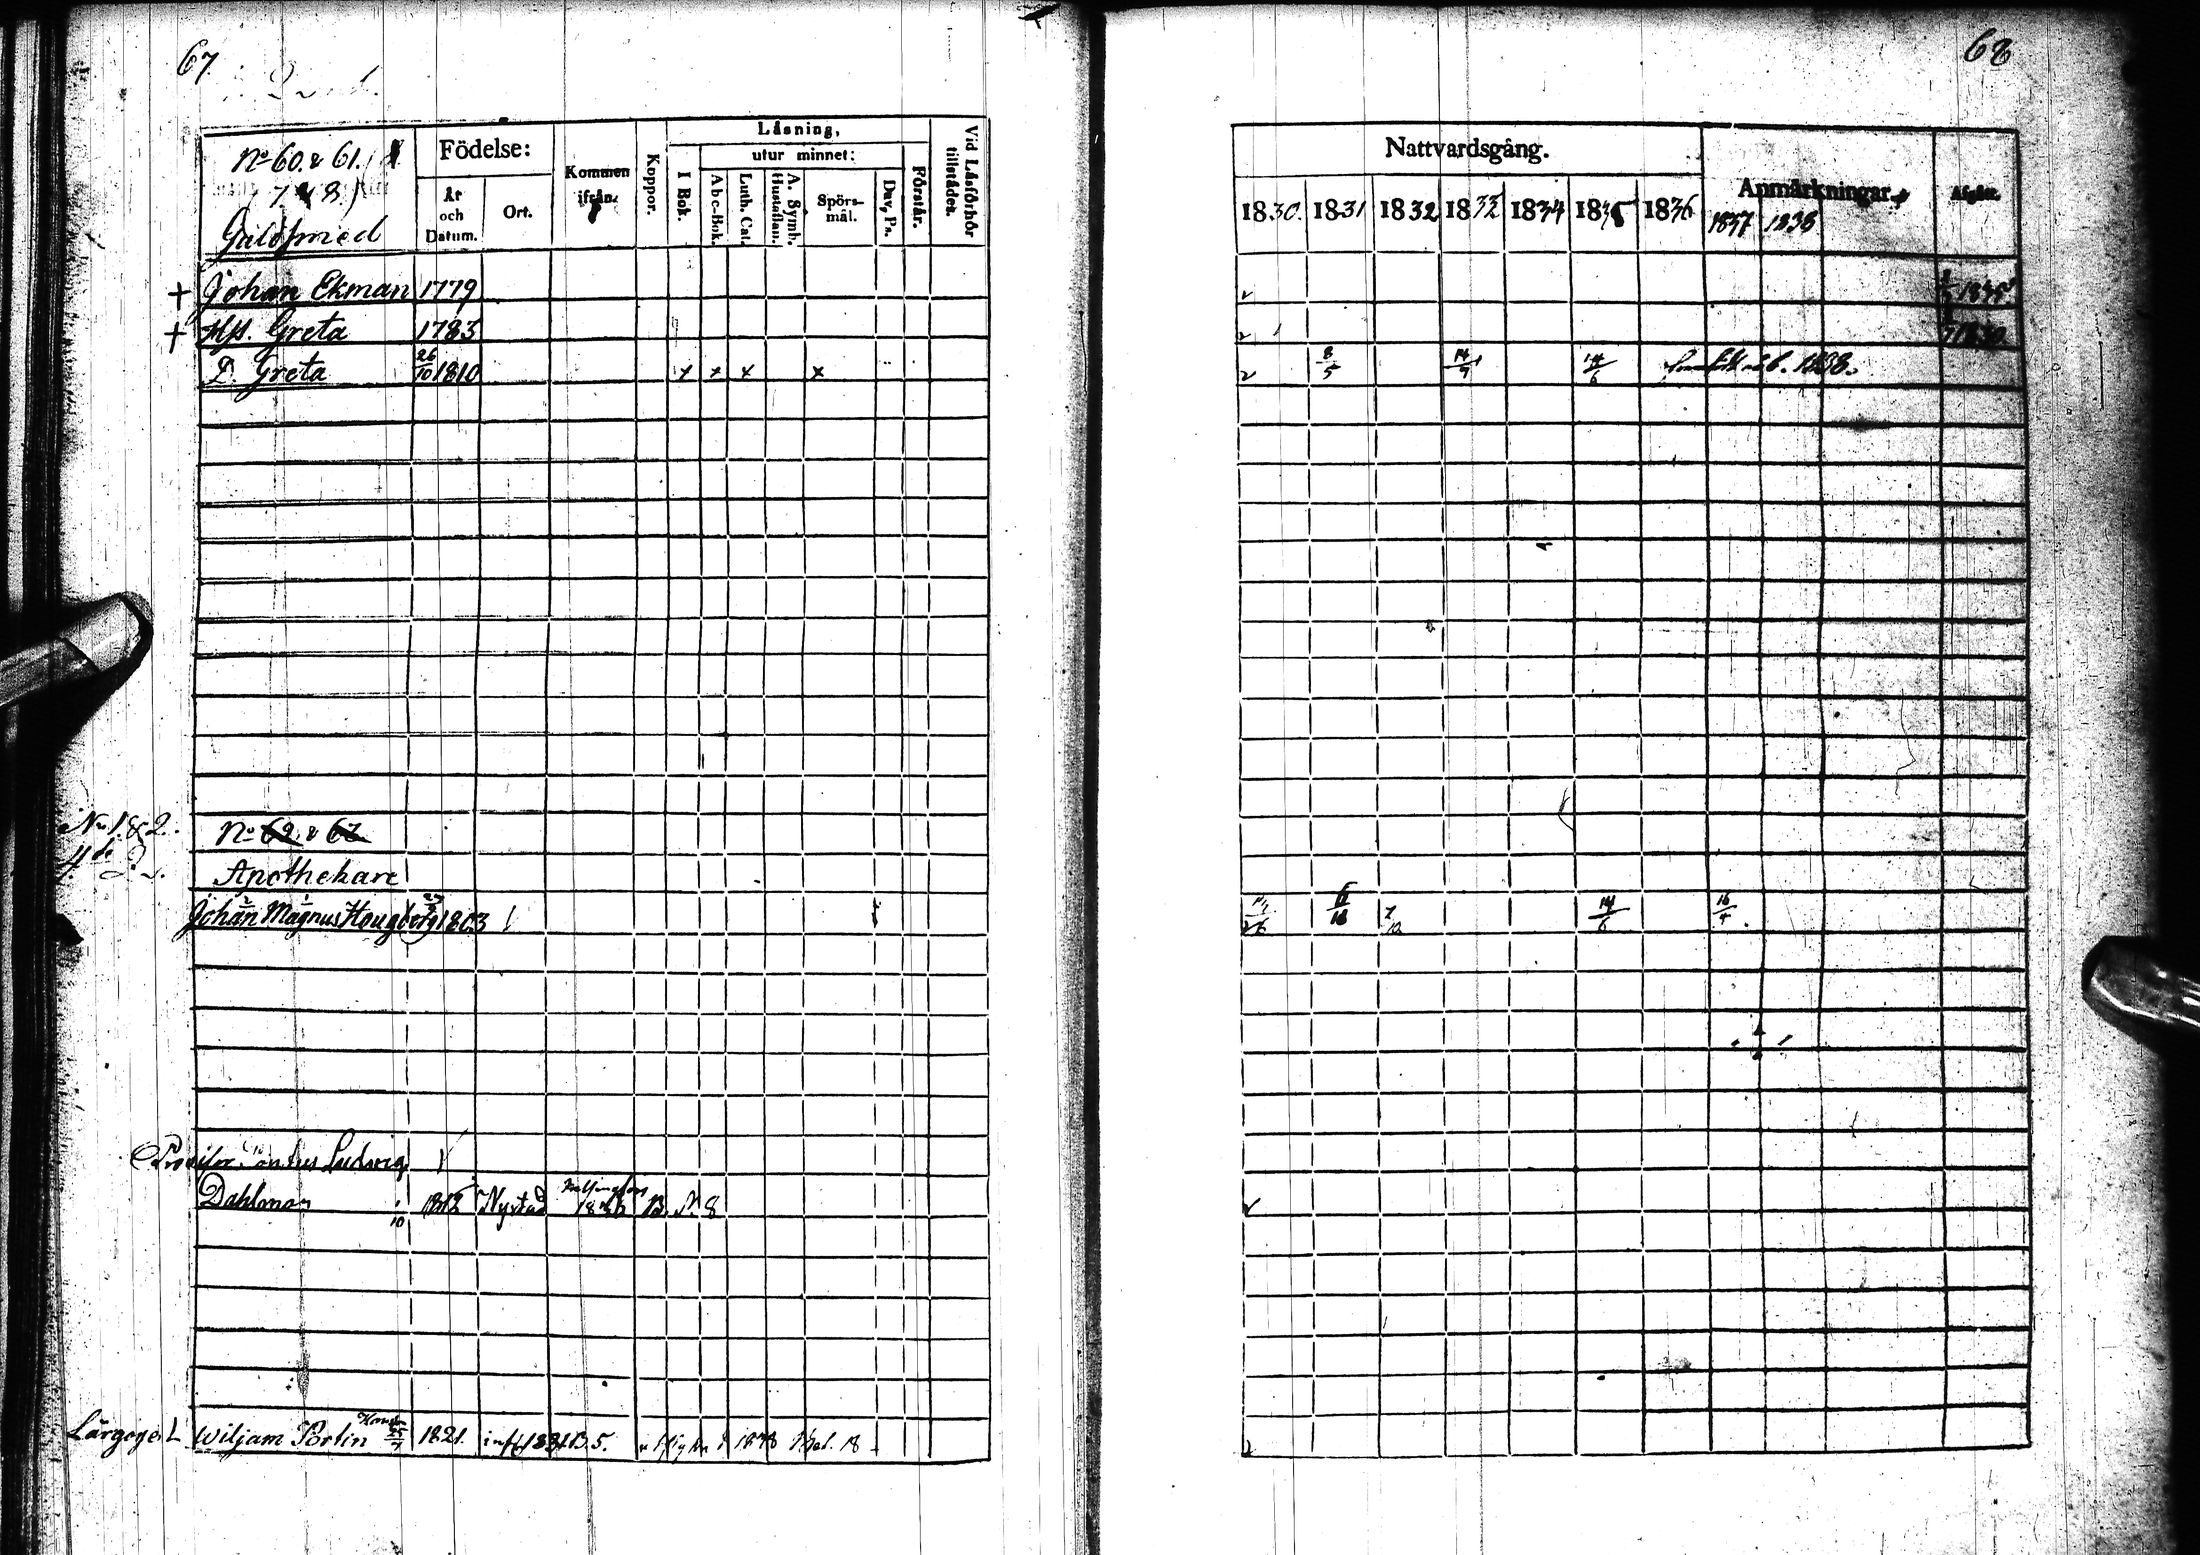 67
No 60. & 61.
7 & 8)
Guldsmed
Födelse:
År och Datum.
Ort.
Kommen ifrån.
Koppor.
Läsning,
utur minnet:
I Bok.
Abc-Bok.
Luth. Cat.
A. Symb. Hustaflan.
Spörsmål.
Dav. Ps.
Förstår.
Vid Läsförhör tillstädes.
+ Johan Ekman 1779
+ Hst. Greta 1783
D. Greta 26/10 1810 x x x x
No 1. & 2.
4de
No 62. & 67
Apothekare
Johan Magnus Hougberg 1803
Provisor Pontus Ludvig
Dahlman 10 1812 Nystad Helsingfors 1836 B. N 8
Lärgosse Wiljam Portin 25/7 1821. infl. 1837 B. 5. 1838
68
Nattvardsgång.
1830. 1831 1832 1833 1834 1835 1836
Anmärkningar.
1837 1838
Afgått.
8/5 14/7 14/6 1838.
7/10 14/6 16/4